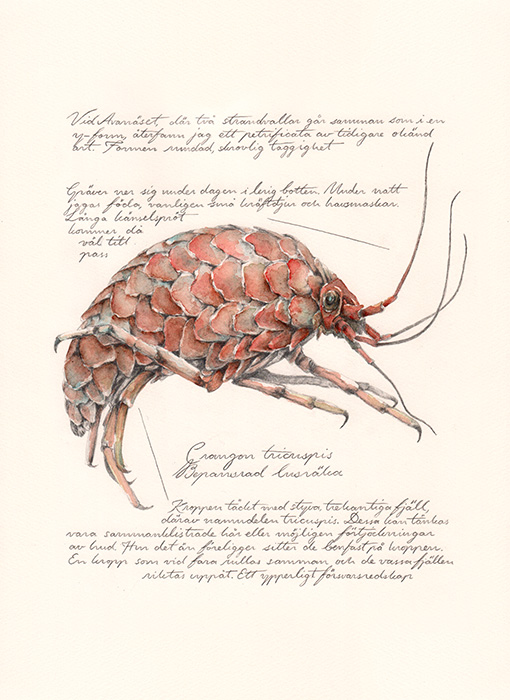 Vid Avanäset, där två strandvallar går samman som i en
y-form, återfann jag ett petrificata av tidigare okänd
art. Formen rundad, skrovlig taggighet
Gräver ner sig under dagen i lerig botten. Under natt
jagas föda, vanligen små kräftdjur och havsmaskar.
Långa känselspröt
kommer då
väl till
pass
Crangon tricuspis
Bepansrad lusräka
Kroppen täckt med styva, trekantiga fjäll,
därav namndelen tricuspis. Dessa kan tänkas
vara sammanklistrade hår eller möjligen förtjockningar
av hud. Hur det än föreligger sitter de benfast på kroppen.
En kropp som vid fara rullas samman och de vassa fjällen
riktas uppåt. Ett ypperligt försvarsredskap